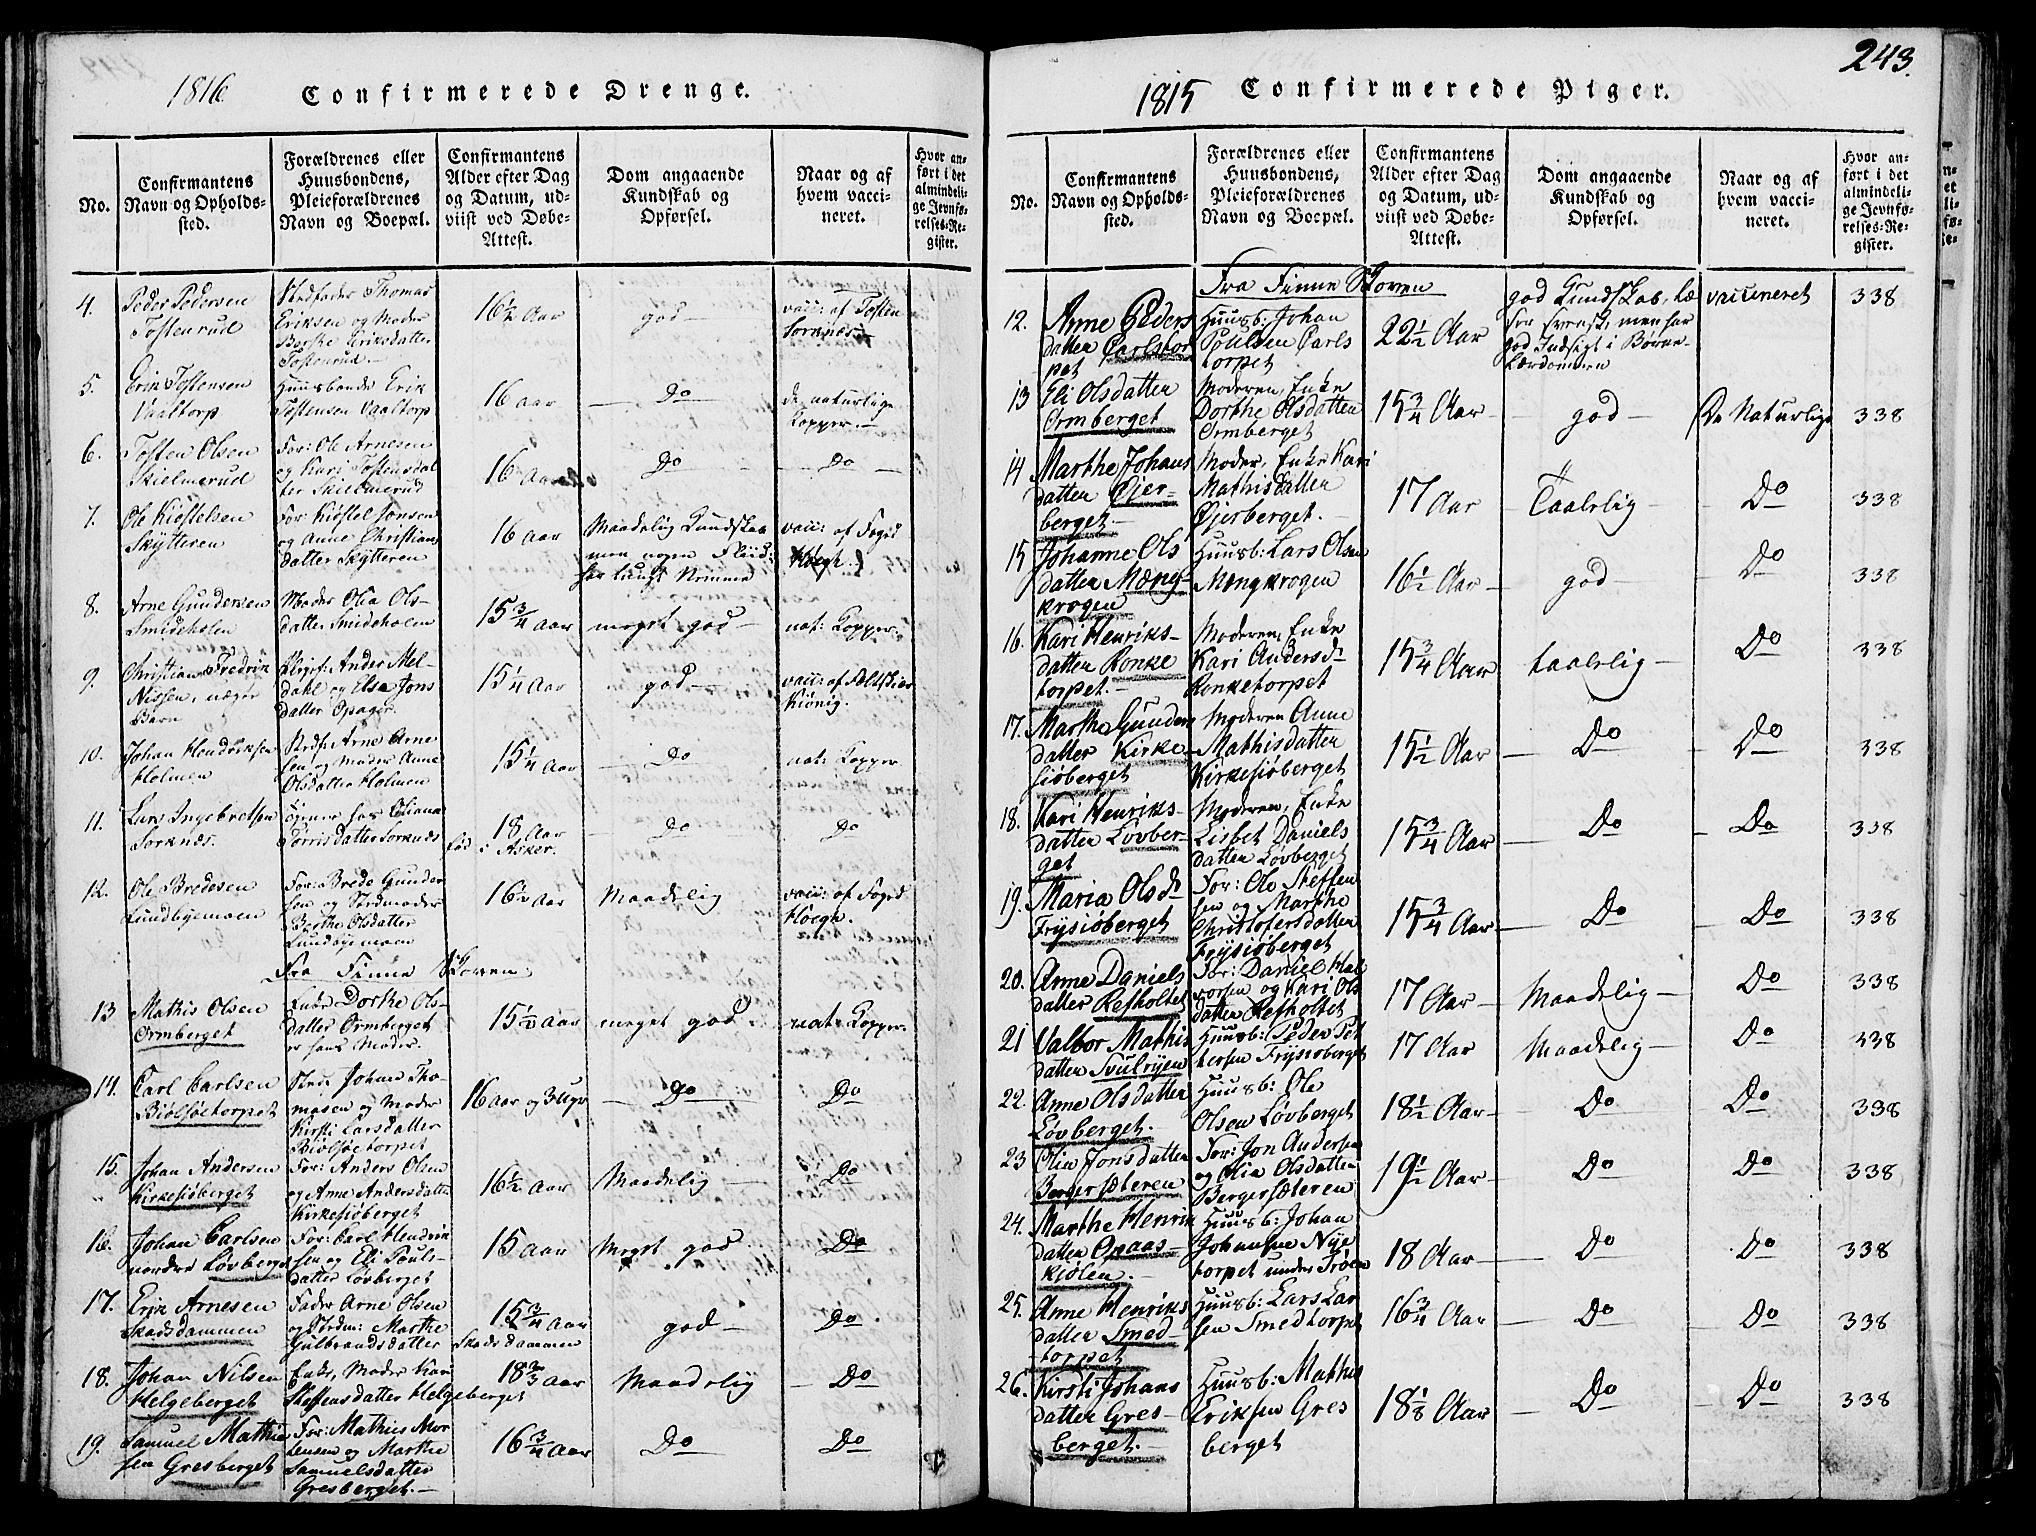 1816
Confirmerede Drenge.
No.
Confirmantens
Navn og Opholds-
sted.
Forældrenes eller
Huusbondens,
Pleieforældrenes
Navn og Boepæl.
Confirmantens
Alder efter Dag
og Datum, ud-
viist ved Døbe-
Attest.
Dom angaaende
Kundskab og
Opførsel.
Naar og af
hvem vacci-
neret.
Hvor an-
ført i det
almindeli-
ge Jevnfø-
relses-Re-
gister.
4.
Peder Pedersen
Tostenrud
Stedfader Thomas
Eriksen og Moder
Berthe Eriksdatter
Tostenrud
16½ Aar
god
vacc: af Tosten
Sorknæs
5.
Erik Tostensen
Vaaltorp
Huusbonde Erik
Tostensen Vaaltorp
16 aar
Do
de naturlige
Kopper.
6.
Tosten Olsen
Skielmerud
For: Ole Arnesen
og Kari Tostensdat
ter Skielmerud
16 Aar
Do
Do
7.
Ole Kiøstelsen
Skÿtteren
For Kiøstel Jonsen
og Anne Christians
datter Skÿtteren
16 aar
Maadelig Kundskab
men nogen Fliid:
har tungt Nemme
vacc: af Foged
Høegh.
8.
Arne Gundersen
Smideholen
Moder Olia Ols-
datter Smideholen
15¾ aar
meget god
nat: Kopper.
9.
Christian Fredrik
Nissen, uægte
Barn
Pleief: Anders Mel-
dahl og Else Jons
datter Opager.
15¼ aar
god
vacc: af Feltskier
Kiönig.
10.
Johan Hendriksen
Holmen
Stedf: Arne Arne
sen og Moder Anne
Olsdatter Holmen
15¼ aar
Do
nat: Kopper
11.
Lars Ingebretsen
Sorknæs.
tiener hos Oliana
Torrisdatter Sorknæs
18 Aar
fød i Asker.
Do
Do
12.
Ole Bredesen
Lundbyemoen
For: Brede Gunder
sen og Stedmoder
Berthe Olsdatter
Lundbyemoen
16½ aar
Maadelig
vacc: af Foged
Høegh.
Fra Finne Skoven
13
Mathis Olsen
Ormberget
Enke Dorthe Ols-
datter Ormberget
er hans Moder.
15½ aar
meget god
nat: Kopper
14.
Carl Carlsen
Biölsöetorpet
Stedf: Johan Tho-
masen og Moder
Kirsti Larsdatter
Biölsöetorpet
16 aar og 3 Ugr
Do
Do
15.
Johan Andersen
Kirkesiöberget
For: Anders Olsen
og Anne Andersdatter
Kirkesiöberget
16½ aar
Maadelig
Do
16.
Johan Carlsen
nordre Lövberget
For: Carl Hendrik
sen og Eli Pouls-
datter Lövberget
15 aar
Meget god
Do
17.
Erik Arnesen
Skadsdammen
Fader Arne Olsen
og Stedm: Marthe
Gulbrandsdatter
Skadsdammen
15¾ Aar
god
Do.
18.
Johan Nilsen
Helgeberget
Enke, Moder Kari
Steffensdatter Helgeberget
18⅔ aar
Maadelig
Do
19.
Samuel Mathie
sen Gresberget
For: Mathies Mor
tensen og Marthe
Samuelsdatter
Gresberget.
16¾ aar
Do
Do
243.
1815
Confirmerede Piger.
No.
Confirmantens
Navn og Opholds-
sted.
Forældrenes eller
Huusbondens,
Pleieforældrenes
Navn og Boepæl.
Confirmantens
Alder efter Dag
og Datum, ud-
viist ved Døbe-
Attest.
Dom angaaende
Kundskab og
Opførsel.
Naar og af
hvem vacci-
neret.
Hvor an-
ført i det
almindeli-
ge Jevnfø-
relses-Re-
gister.
Fra Finne Skoven
12.
Anne Peders
datter Carlstor
pet
Huusb: Johan
Poulsen Carls
torpet
22½ Aar
god Kundskab, læ
ser svensk, men har
god Indsigt i Børne-
Lærdommen
vaccineret
338
13
Eli Olsdatter
Ormberget
Moderen, Enke
Dorthe Olsdatter
Ormberget
15¾ Aar
god
De Naturlige
338
14
Marthe Johans
datter Øjer-
berget
Moder, Enke Kari
Mathisdatter
Øjerberget.
17 Aar
Taalelig
Do
338
15
Johanne Ols
datter Mæng-
krogen
Huusb: Lars Olsen
Mengkrogen
16½ Aar
god
Do
338
16.
Kari Henriks-
datter Ronke
torpet.
Moderen, Enke
Kari Andersdr
Ronketorpet
15¾ Aar
taalelig
Do
338
17.
Marthe Gunders
datter Kirke-
siöberget
Moderen Anne
Mathisdatter
Kirkesiöberget
15½ Aar
Do
Do
338
18.
Kari Henriks-
datter Lövber-
get
Moderen, Enke
Lisbet Daniels
datter Lövberget
15¾ Aar
Do
Do
338
19.
Maria Olsdr
Frÿsiöberget
For: Ole Steffen
sen og Marthe
Christofersdatter
Frÿsiöberget
15¾ Aar
Do
Do
338
20.
Anne Daniels
datter Refholtet
For: Daniel Hal
vorsen og Kari Ols
datter Refholtet
17 Aar
Maadelig
Do
338
21
Valbor Mathis
datter Svulrÿen
Huusb: Peder Pet
tersen Frÿsiöberget
17 Aar
Maadelig
Do
338
22.
Anne Olsdatter
Lövberget.
Huusb: Ole
Olsen Lövberget
18½ Aar
Do
Do
338
23
Olia Jonsdatter
Bergersæteren
For: Jon Andersen
og Olia Olsdatter
Bergersæteren
19½ Aar
Do
Do
338
24.
Marthe Henrik
datter Opaas
kiölen.
Huusb: Johan
Johansen Nÿe
torpet under Tröen
18 Aar
Do
Do
338
25.
Anne Henriks
datter Smed-
torpet
Huusb: Lars Lar
sen Smedtorpet
16¾ Aar
Do
Do
338
26.
Kirsti Johans
datter Gres-
berget.
Huusb: Mathis
Eriksen Gres
berget
18⅛ Aar
Do
Do
338